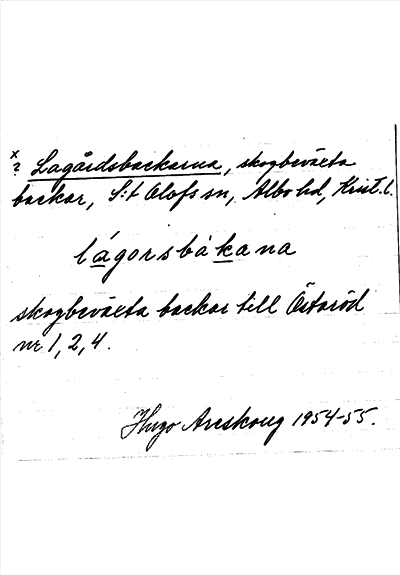 x
? Lagårdsbackarna, skogbevärta
backar, S:t Olofs sn, Albo hd, Krist. l.
lágorsbàkana
skogbevärta backar till Östaröd
nr 1, 2, 4.
Hugo Areskoug 1954-55.